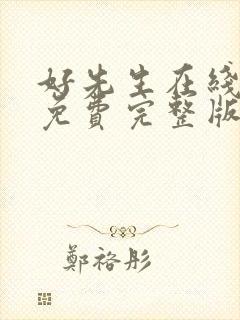 好先生在线
免費完整版
鄭袼彤